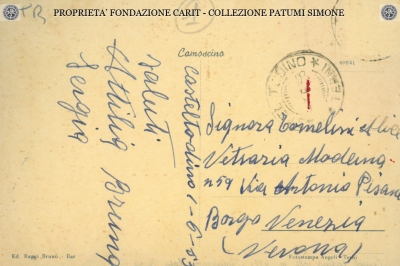 PROPRIETA' FONDAZIONE CARIT - COLLEZIONE PATUMI SIMONE
TR
Camoscino
Casteltodino 1-6-53
Saluti
Attilia Bruna
Sergio
CASTELTODINO
Signora Tomelini Alice
Vetraria Moderna
n 59 Via Antonio Pisano
Borgo Venezia
(Verona)
Ed. Raggi Bruno - Bar
Fotostampa Angeli - Terni